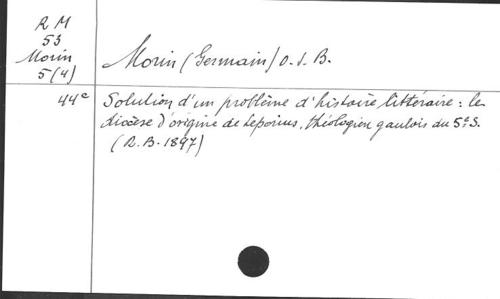 R M
53
Morin
5(4)
Morin (Germain) O.S.B.
44e
Solution d'un problème d'histoire littéraire : le
diocèse d'origine de Leporius, théologien gaulois du 5e S.
(R.B. 1897)